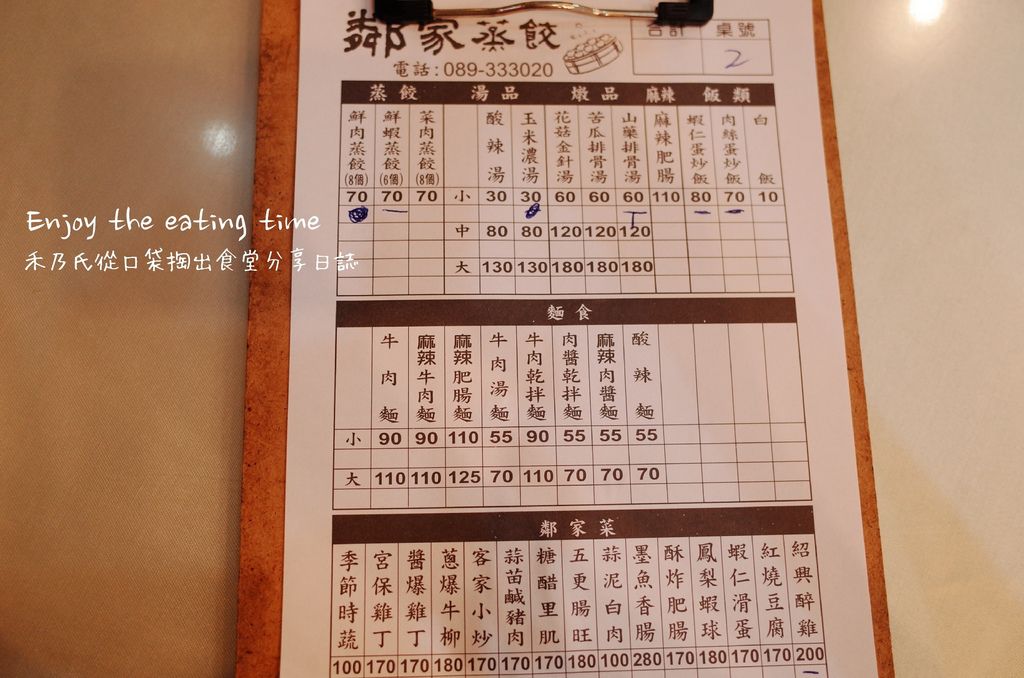 鄰家蒸餃
電話:089-333020
合計 桌號
2
蒸餃 湯品 燉品 麻辣 飯類
鮮肉蒸餃(8個) 鮮蝦蒸餃(6個) 菜肉蒸餃(8個) 酸辣湯 玉米濃湯 花菇金針湯 苦瓜排骨湯 山藥排骨湯 麻辣肥腸 蝦仁蛋炒飯 肉絲蛋炒飯 白飯
70 70 70 小 30 30 60 60 60 110 80 70 10
中 80 80 120 120 120
大 130 130 180 180 180
Enjoy the eating time
禾乃氏從口袋掏出食堂分享日誌
麵食
牛肉麵 麻辣牛肉麵 麻辣肥腸麵 牛肉湯麵 牛肉乾拌麵 肉醬乾拌麵 麻辣肉醬麵 酸辣麵
小 90 90 110 55 90 55 55 55
大 110 110 125 70 110 70 70 70
鄰家菜
季節時蔬 宮保雞丁 醬爆雞丁 蔥爆牛柳 客家小炒 蒜苗鹹豬肉 糖醋里肌 五更腸旺 蒜泥白肉 墨魚香腸 酥炸肥腸 鳳梨蝦球 蝦仁滑蛋 紅燒豆腐 紹興醉雞
100 170 170 180 170 170 170 180 100 280 170 180 170 170 200